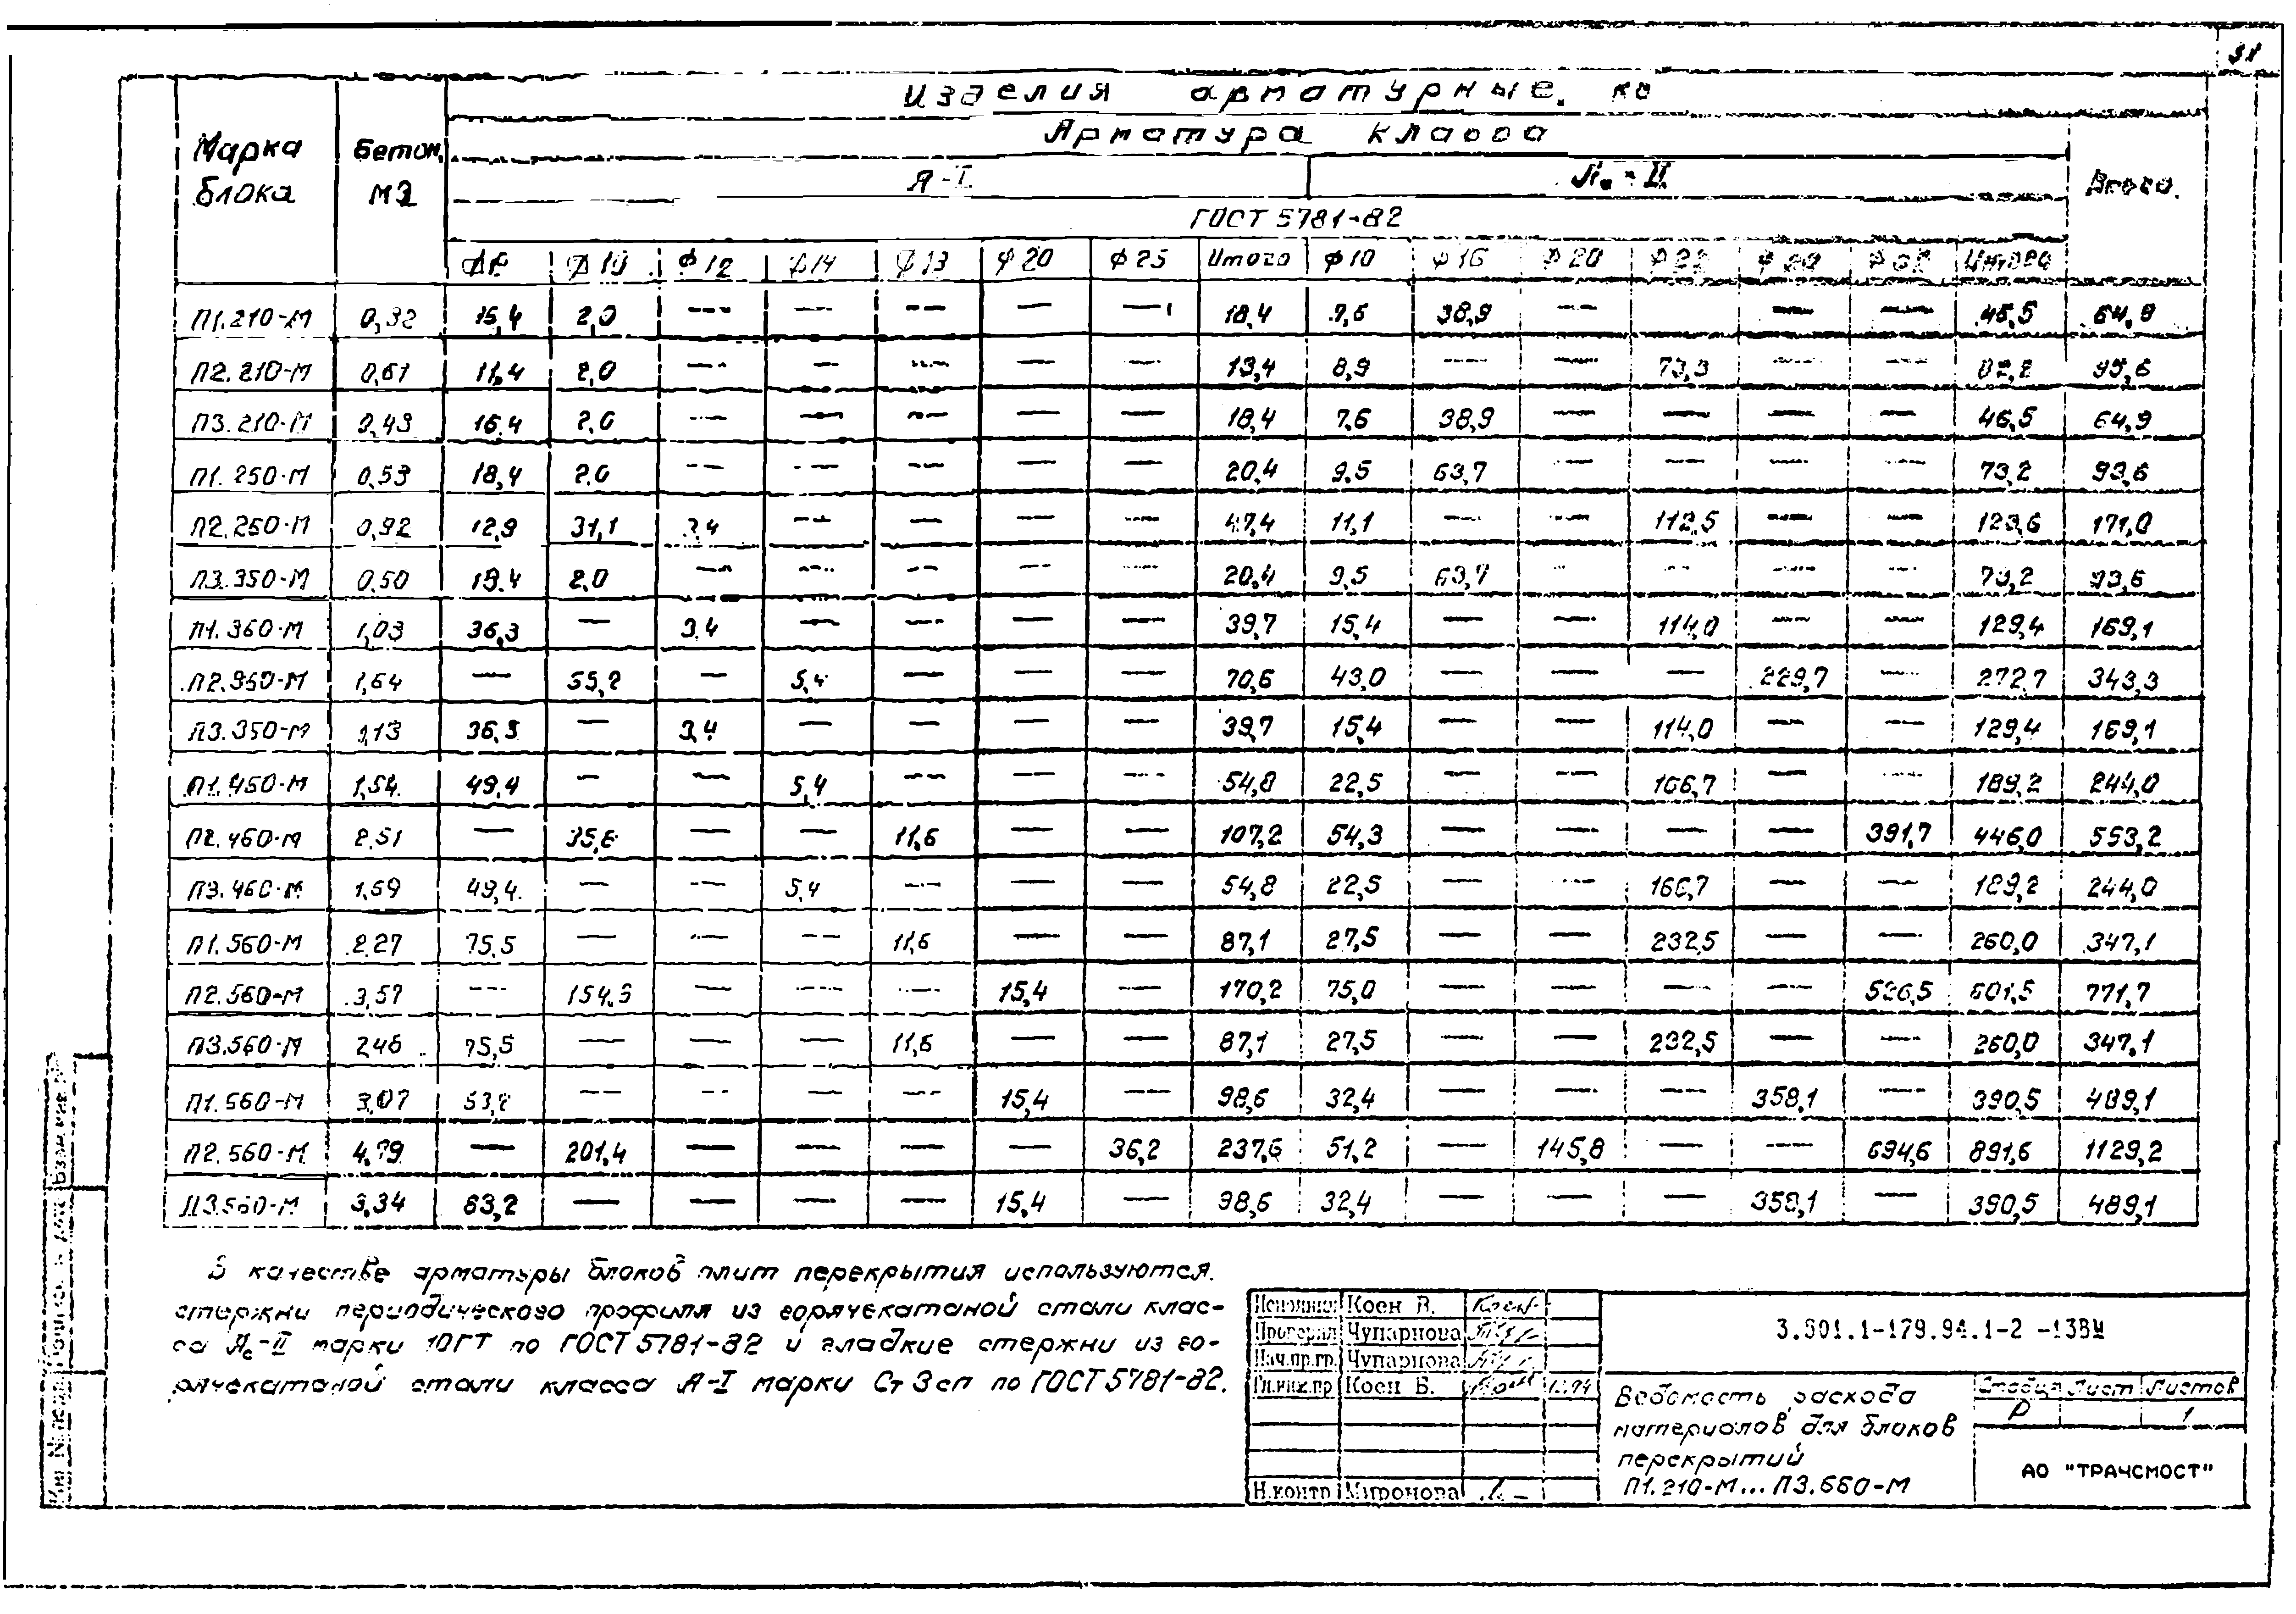 31
Изделия арматурные, кг
Арматура класса
Марка блока
Бетон, м3
А-I
Ас-II
Всего
ГОСТ 5781-82
Ф8 Ф10 Ф12 Ф14 Ф18 Ф20 Ф25 Итого Ф10 Ф16 Ф20 Ф22 Ф32 Итого
П1.210-М 0,32 16,4 2,0 — — — — — 18,4 7,6 38,9 — — — 46,5 64,9
П2.210-М 0,61 11,4 2,0 — — — — — 13,4 8,9 — — 73,3 — — 82,2 95,6
П3.210-М 0,43 16,4 2,0 — — — — — 18,4 7,6 38,9 — — — — 46,5 64,9
П1.250-М 0,53 18,4 2,0 — — — — — 20,4 9,5 63,7 — — — — 73,2 93,6
П2.260-М 0,92 12,9 31,1 3,4 — — — — 47,4 11,1 — — 112,5 — — 123,6 171,0
П3.350-М 0,50 18,4 2,0 — — — — — 20,4 9,5 63,7 — — — — 73,2 93,6
П1.360-М 1,03 36,3 — 3,4 — — — — 39,7 15,4 — — 114,0 — — 129,4 169,1
П2.350-М 1,64 — — 5,4 — — — 70,6 43,0 — — — 229,7 — 272,7 343,3
П3.350-М 1,13 36,3 — 3,4 — — — — 39,7 15,4 — — 114,0 — — 129,4 169,1
П1.450-М 1,54 49,4 — — 5,4 — — — 54,8 22,5 — — 166,7 — — 189,2 244,0
П2.460-М 2,51 — — — 11,6 — — 107,2 54,3 — — — — 391,7 446,0 553,2
П3.460-М 1,69 49,4 — — 5,4 — — — 54,8 22,5 — — 166,7 — — 189,2 244,0
П1.560-М 2,27 75,5 — — — 11,6 — — 87,1 27,5 — — 232,5 — — 260,0 347,1
П2.560-М 3,57 — — — — 15,4 — 170,2 75,0 — — — — 526,5 601,5 771,7
П3.560-М 2,46 75,5 — — — 11,6 — — 87,1 27,5 — — 232,5 — — 260,0 347,1
П1.660-М 3,07 83,2 — — — — 15,4 — 98,6 32,4 — — — 358,1 — 390,5 489,1
П2.660-М 4,79 — 201,4 — — — — 36,2 237,6 51,2 — 145,8 — — 694,6 891,6 1129,2
П3.660-М 3,34 83,2 — — — — 15,4 — 98,6 32,4 — — — 358,1 — 390,5 489,1
В качестве арматуры блоков плит перекрытия используются
стержни периодического профиля из горячекатаной стали клас-
са Ас-II марки 10ГТ по ГОСТ 5781-82 и гладкие стержни из го-
рячекатаной стали класса А-I марки Ст 3 сп по ГОСТ 5781-82.
Исполнил Коен В.
Проверил Чупарнова
Нач.пр.гр. Чупарнова
Гл.инж.пр Коен В.
Н.контр Миронова
3.501.1-179.94.1-2 -13ВМ
Ведомость расхода
материалов для блоков
перекрытий
П1.210-М...П3.660-М
Стадия Лист Листов
Р 1
АО "ТРАНСМОСТ"
Взам.инв.